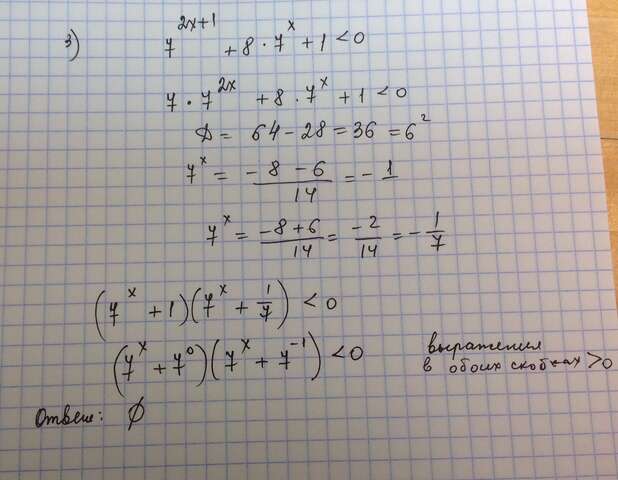 3) 7^{2x+1} + 8 · 7^x + 1 < 0
7 · 7^{2x} + 8 · 7^x + 1 < 0
Д = 64 - 28 = 36 = 6^2
7^x = \frac{-8 - 6}{14} = -1
7^x = \frac{-8 + 6}{14} = \frac{-2}{14} = -\frac{1}{7}
(7^x + 1)(7^x + \frac{1}{7}) < 0
(7^x + 7^0)(7^x + 7^{-1}) < 0
выражения
в обоих скобках > 0
Ответ: ∅